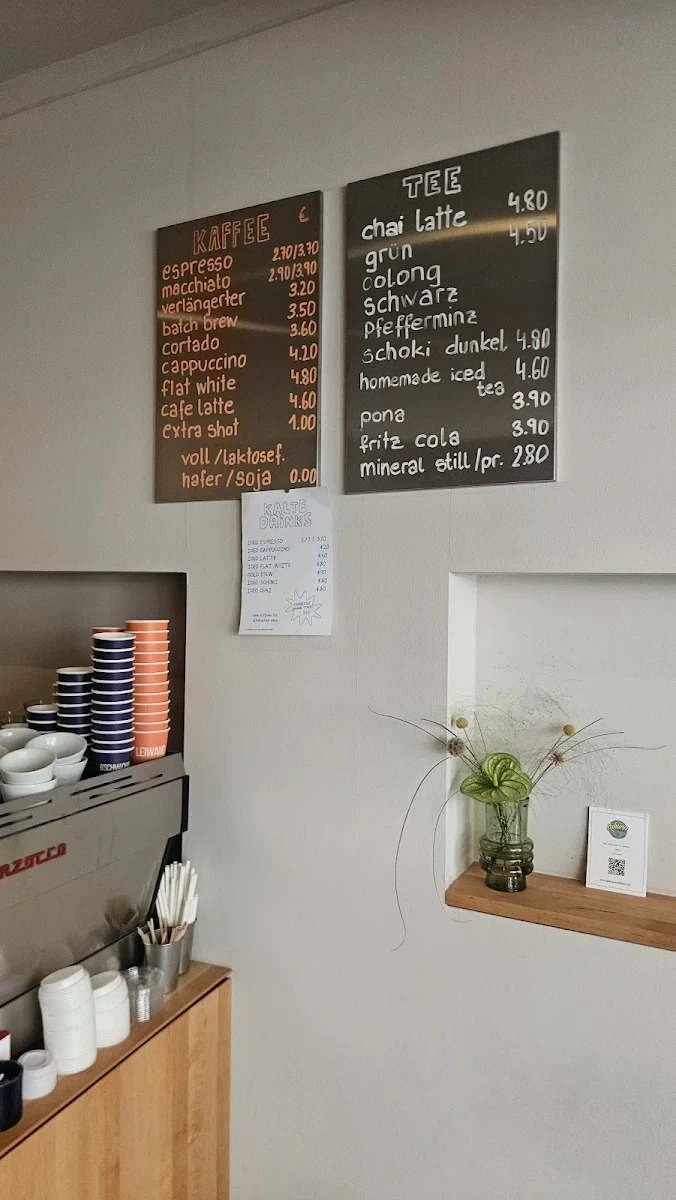 KAFFEE €
espresso 2.70/3.70
macchiato 2.90/3.90
verlängerter 3.20
batch brew 3.50
cortado 3.60
cappuccino 4.20
flat white 4.80
cafe latte 4.60
extra shot 1.00
voll/laktosef.
hafer/soja 0.00
TEE
chai latte 4.80
grün 4.50
oolong
schwarz
pfefferminz
schoki dunkel 4.80
homemade iced 4.60
tea
pona 3.90
fritz cola 3.90
mineral still/pr. 2.80
KALTE
DRINKS
ICED ESPRESSO
ICED CAPPUCCINO
ICED LATTE
ICED FLAT WHITE
COLD BREW
ICED SCHOKI
ICED CHAI
LEIWAND
G'SCHMACKI